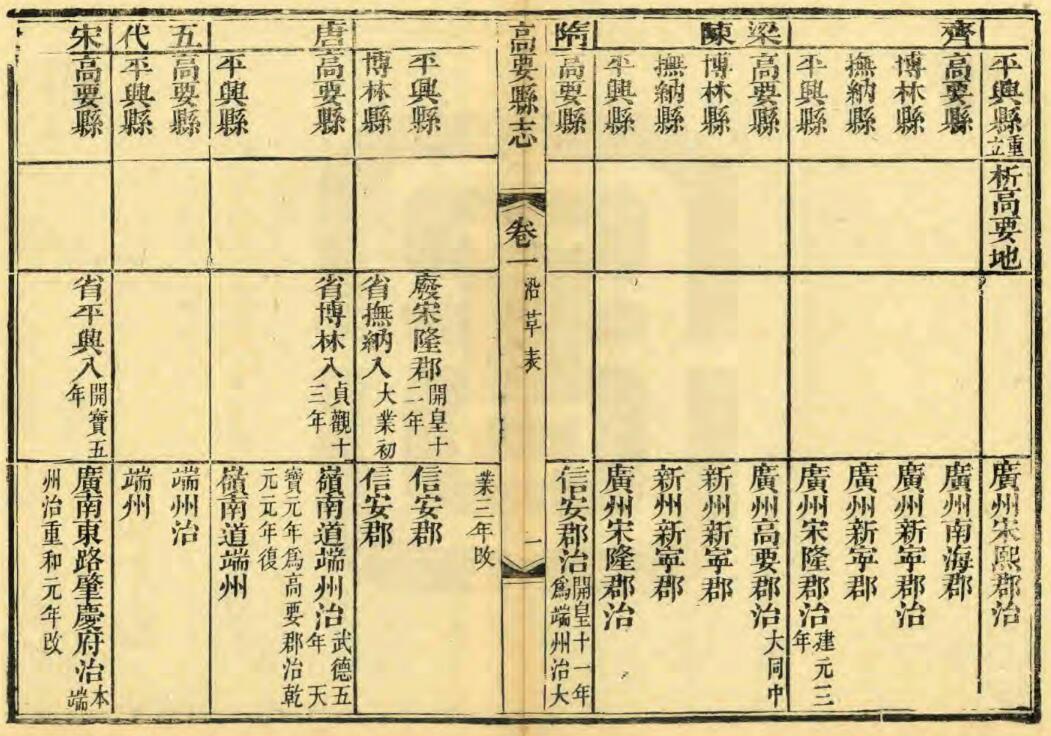 平興縣重立
析高要地
廣州宋熙郡治
齊
高要縣
廣州南海郡
博林縣
廣州新寧郡治
撫納縣
廣州新寧郡
平興縣
廣州宋隆郡治建元三年
梁陳
高要縣
廣州高要郡治大同中
博林縣
新州新寧郡
撫納縣
新州新寧郡
平興縣
廣州宋隆郡治
隋
高要縣
信安郡治開皇十一年爲端州治大
高要縣志
卷一
沿革表
一
業三年改
平興縣
廢宋隆郡開皇十二年
信安郡
博林縣
省撫納入大業初
信安郡
唐
高要縣
省博林入貞觀十三年
嶺南道端州治武德五年天
寶元年爲高要郡治乾元元年復
平興縣
嶺南道端州
五代
高要縣
端州治
平興縣
端州
宋
高要縣
省平興入開寶五年
廣南東路肇慶府治本端
州治重和元年改